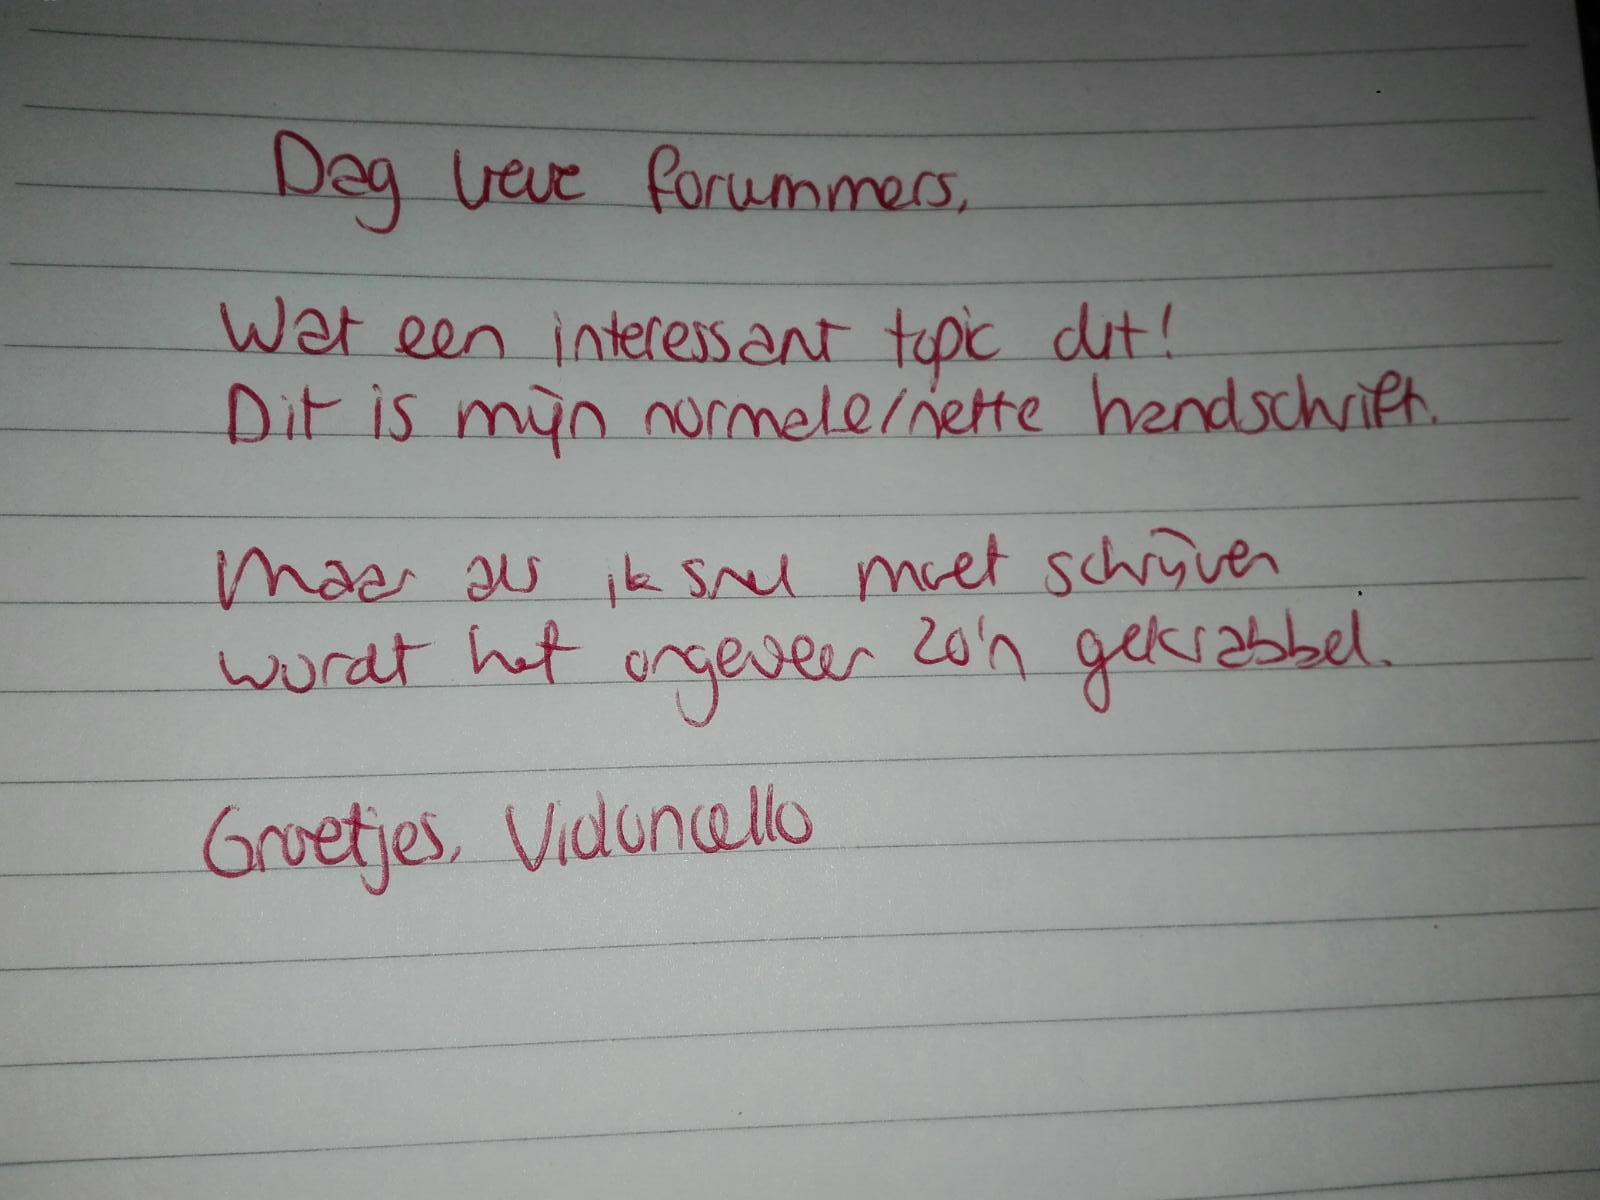 Dag lieve forummers,
Wat een interessant topic dit!
Dit is mijn normale/nette handschrift.
Maar als ik snel moet schrijven
wordt het ongeveer zo'n gekrabbel.
Groetjes, Violoncello